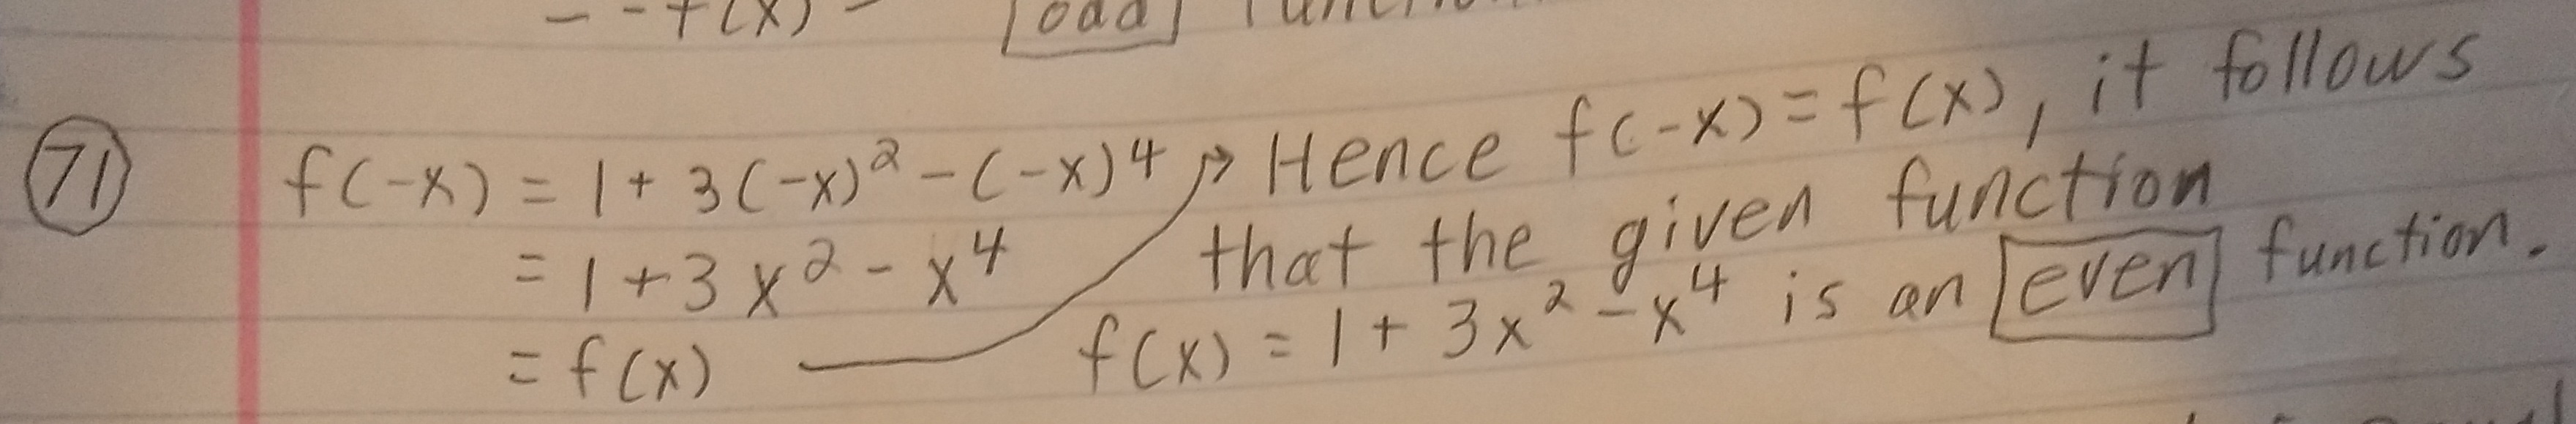 - - f(x) - odd
71 f(-x) = 1 + 3(-x)² - (-x)⁴ → Hence f(-x) = f(x), it follows
= 1 + 3x² - x⁴ that the given function
= f(x) f(x) = 1 + 3x² - x⁴ is an even function.